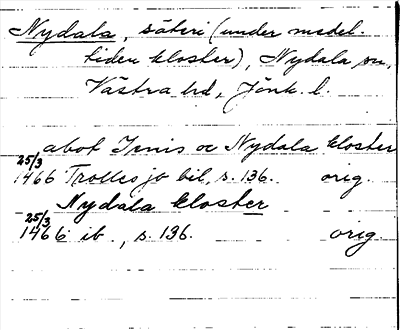 Nydala, säteri (under medel-
tiden kloster), Nydala sn,
Västra hd, Jönk. l.
abot Innis oc Nydala kloster
25/3
1466 Trolles jb bil, s. 136. orig.
Nydala kloster
25/3
1466 ib., s. 136. orig.